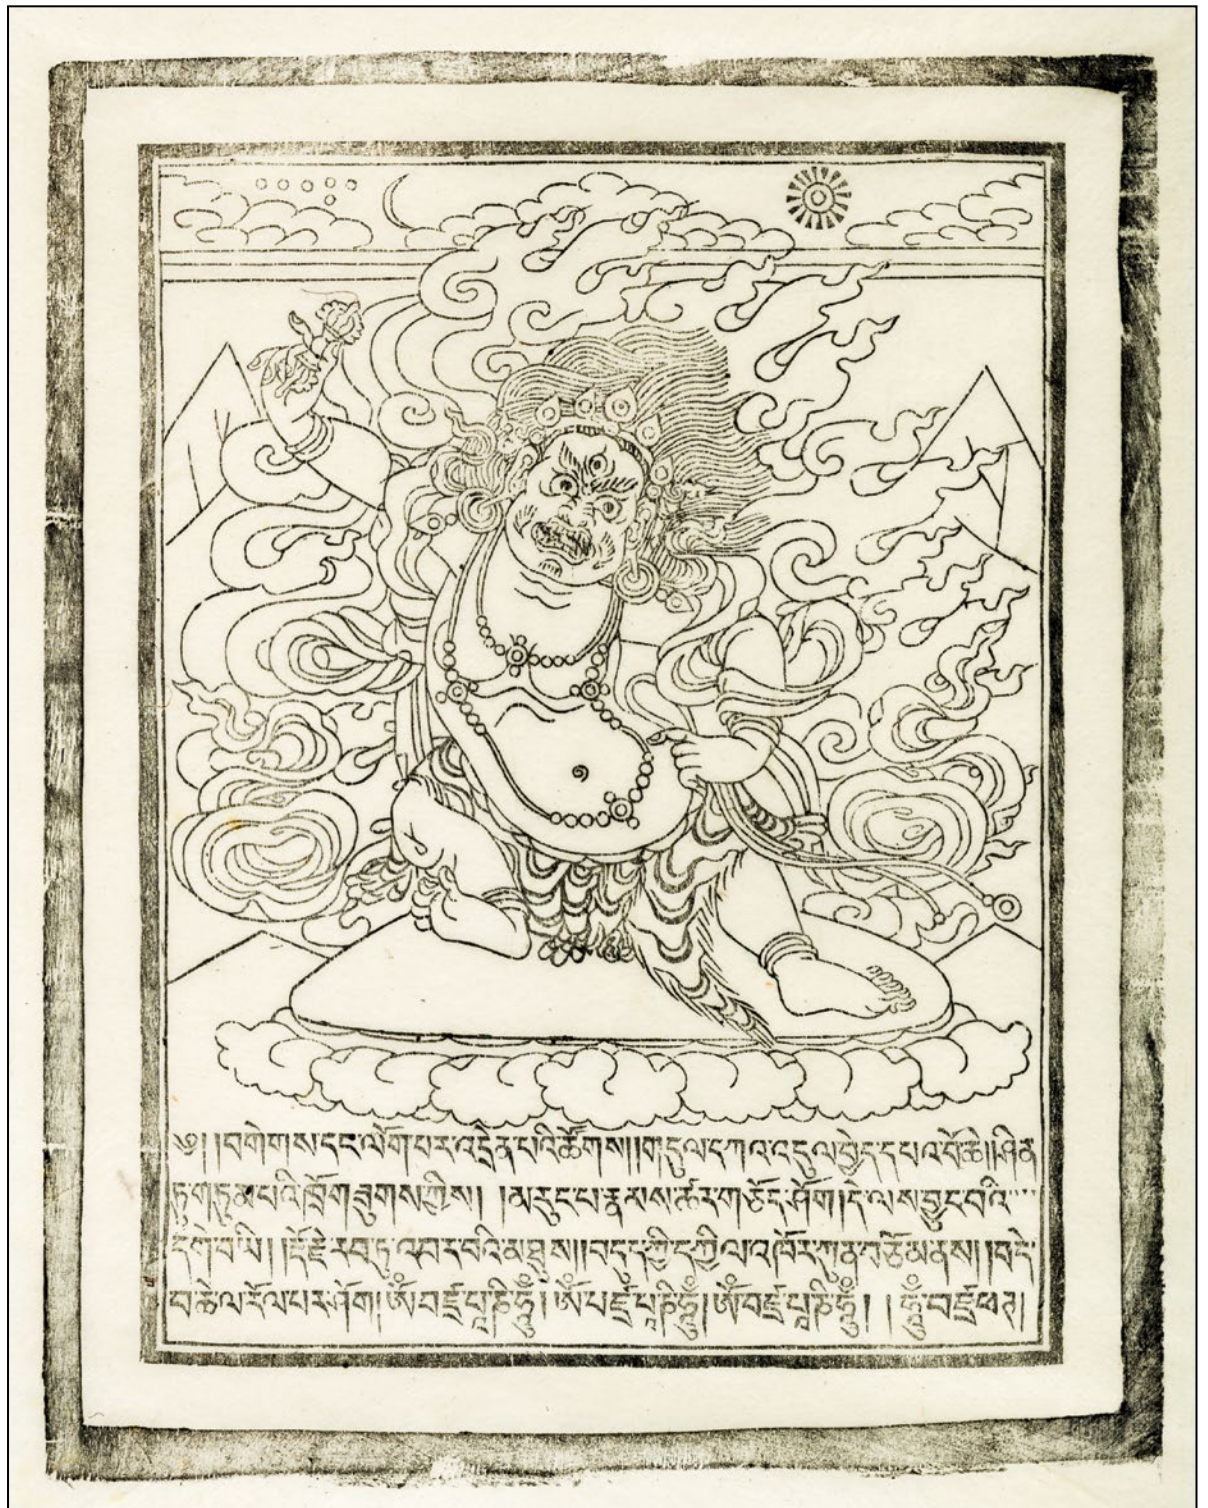 ༄། །བགེགས་དང་ལོག་པར་འདྲེན་པའི་ཚོགས། །གདུལ་དཀའ་འདུལ་བྱེད་དཔའ་བོ་ཆེ། །ཤིན་
ཏུ་གཏུམ་པའི་ཁྲོ་གཟུགས་ཀྱིས། །མ་རུང་པ་རྣམས་ཚར་གཅོད་ཤོག །དེ་ལས་བྱུང་བའི་
རྡོ་རྗེ་རབ་ཏུ་འབར་བའི་མཐུས། །འཁོར་ཀུན་བཅོམ་ནས། །བདེ་
བ་ཆེ་ལ་རོལ་པར་ཤོག །ཨོཾ་བཛྲ་ ཧཱུྃ། ཨོཾ་བཛྲ་ ཧཱུྃ། ཨོཾ་བཛྲ་ ཧཱུྃ། །ཧཱུྃ་བཛྲ་ཕཊ།